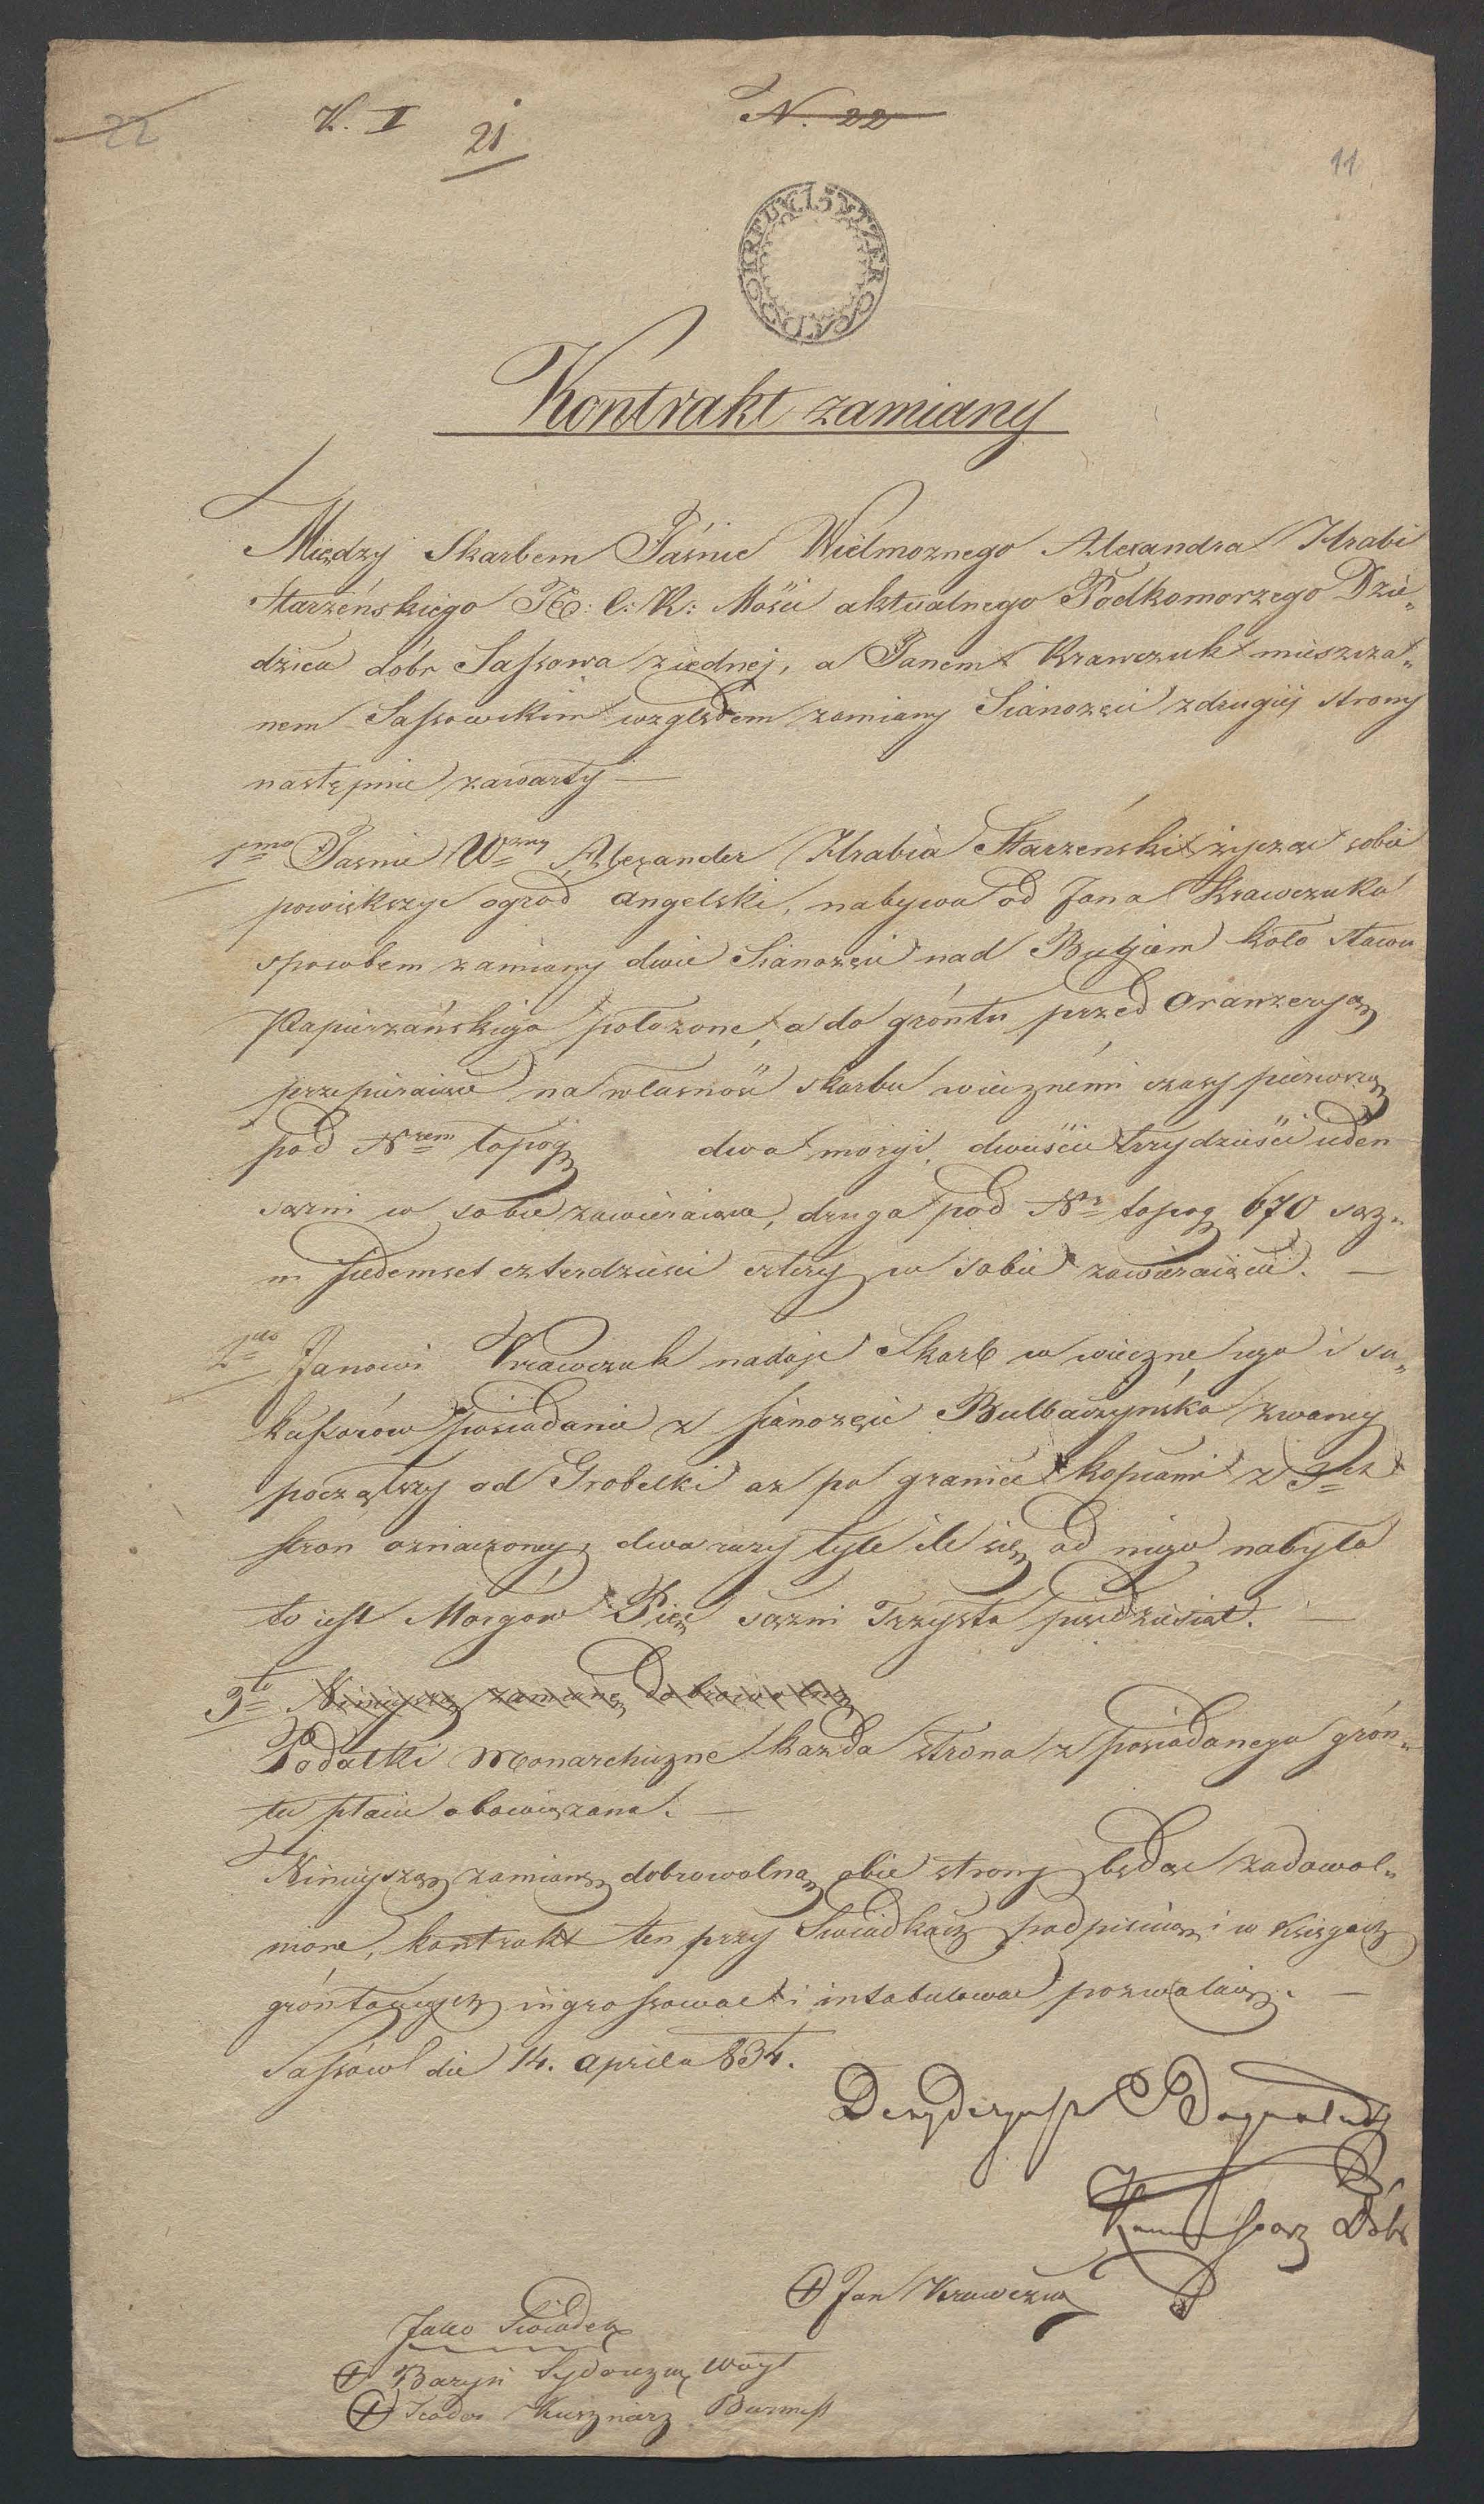 22
K. I
21
N. 22
11
15 KREUTZER
Kontrakt zamiany
Między Skarbem Jaśnie Wielmoznego Alexandra Hrabi
Starzeńskiego C: K: Mości aktualnego Podkomorzego Dzie„
dzica dóbr Sassowa z iednej, a Janem Krawczuk mieszcza„
nem Sassowskim względem zamiany Sianozęci z drugiéj strony
następnie zawarty —
1mo Jasnie Wzny Alexander Hrabia Starzeński zycząc sobie
powiększyc ogrod angelski, nabywa od Jana Krawczuka
sposobem zamiany dwie Sianozęci nad Bugiem koło stawu
Papierzańskiego połozone, a do gróntu przed Oranzeryą
przepieraiące na własność skarbu wiecznémi czasy pierwszą
pod Nrem topog dwa morgi, dwieście trzydzieści ieden
sązni w sobie zawieraiąca, druga pod Nr topog 670 sąz„
ni siedemset czterdziesci cztery w sobie zawieraiącą. —
2do Janowi Krawczuk nadaje Skarb w wieczne iego i su„
kcessorów posiadanie z sianozęci Bulbaczyńska zwaney
począwszy od Grobelki az po granice kopcami z 3ch
stron oznaczoney, dwa razy tyle ile się od niego nabyło
to iest Morgów Pięc sązni Trzysta pięcdziesiat. —
3tio Ninieyszą zamianę dobrowolną
Podatki Monarchiczne kazda strona z posiadanego grón„
tu płacic obowiązana. —
Ninieyszą zamianę dobrowolną obie strony będąc zadowol„
nione, kontrakt ten przy Swiadkach podpisuią i w Księgach
gróntowych ingrossowac i intabulowac pozwalaią. —
Sassów die 14. aprila 834.
Dezyderyusz
Kommissarz Dóbr
+ Jan Krawczuk
Jako Swiadek
+ Sydorczuk Woyt
+ Kusznierz Burmist